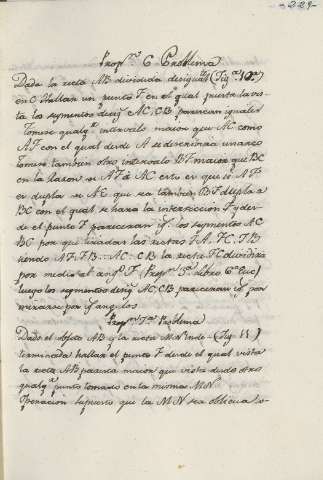 229
Prop.n 6 Problema
Dada la recta AB dividida desigualte (Fig.a 10.a)
en C Hallar un punto F en el qual puesta la vis-
ta los segmentos desigs AC. CB parescan iguales
Tomese qualqr intervalo maior que AC como
AF con el qual desde A se describirá un arco
tomese tambien otro intervalo BF maior que BC
en la razon de AF á AC esto es que si AF
es dupla de AC que sea tambien BF dupla de
BC con el qual se hara la intersección F y des-
de el punto F pareceran igs los segmentos AC
BC por que tiradas las rectas FA. FC. FB
siendo AF. FB :: AC. CB la recta FC dividirá
por medio al ango F (Propn 3a libro 6o Euc)
luego los segmentos desigs AC. CB pareceran igs por
mirarse por igs angulos
Propn 7a Problema
Dado el objeto AB y la recta MN inde- (Fig. 11)
terminada hallar el punto F desde el qual vista
la recta AB paresca maior que vista desde otro
qualqr punto tomado en la misma MN
Operación supuesto que la MN sea oblicua so-